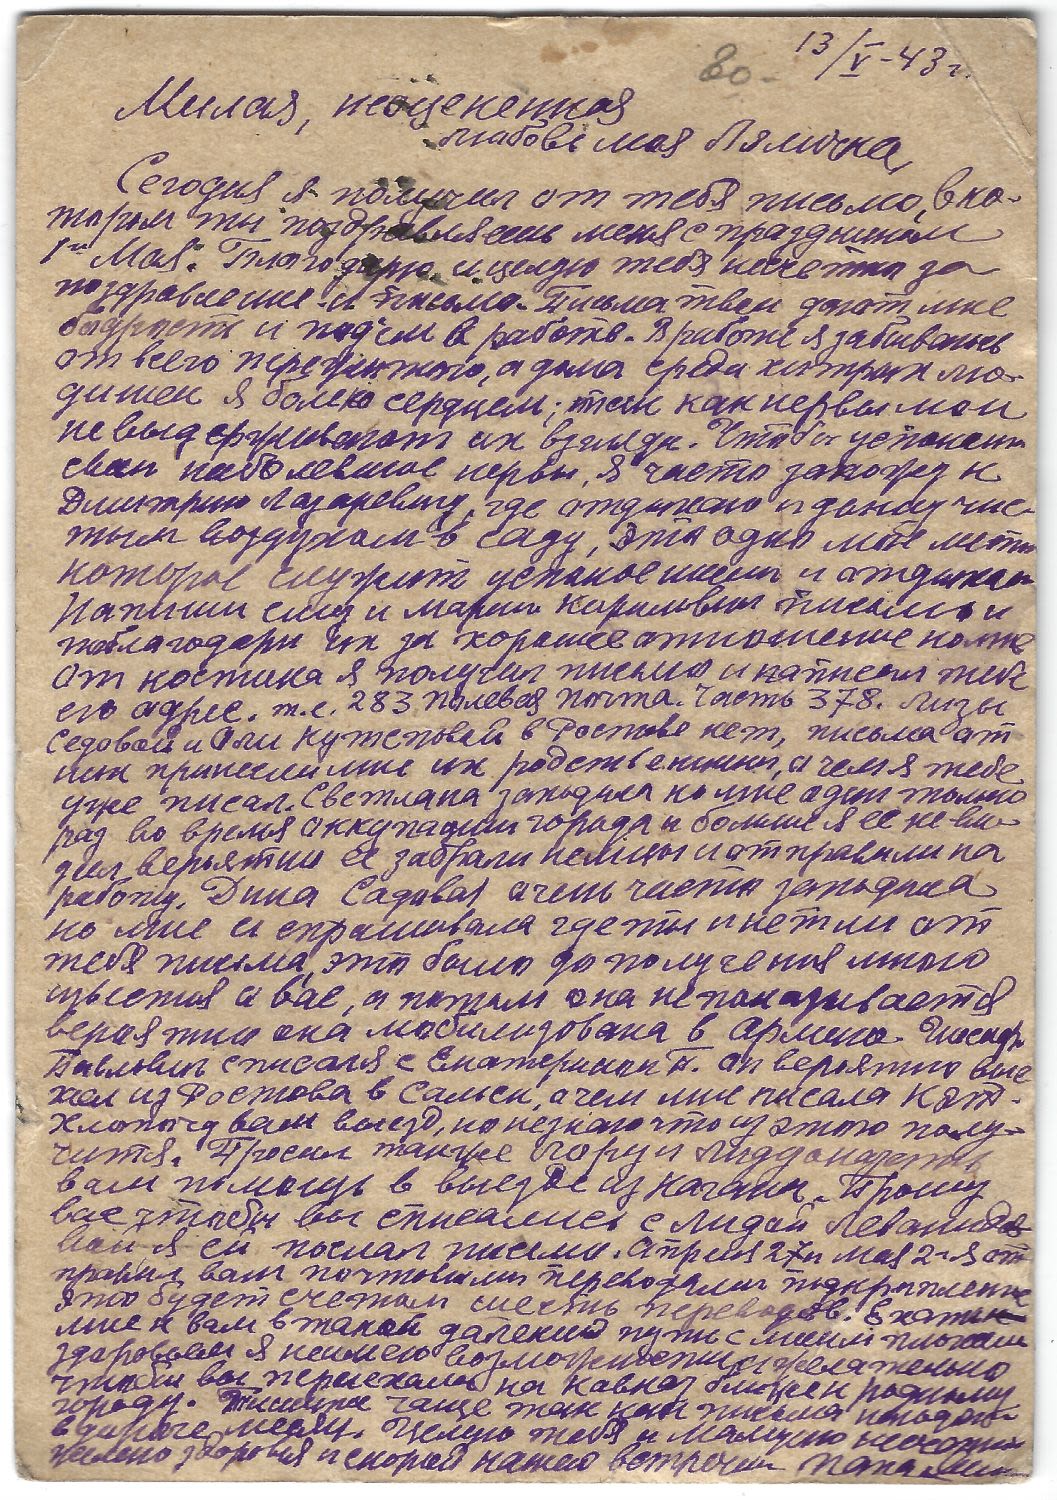 80-
13/V-43 г.
Милая, неоцененная
любовь моя Лялочка,
Сегодня я получил от тебя письмо, в ко-
тором ты поздравляешь меня с праздником
1го Мая. Благодарю и целую тебя несчетно за
поздравление и письмо. Письма твои дают мне
бодрость и подъем в работе. В работе я забываюсь
от всего пережитого, а дома среди которых
я болею сердцем, так как нервы мои
не выдерживают их взгляда. Чтобы успокоить
свои наболевшие нервы, я часто захожу к
Дмитрию Лазаревичу, где отдыхаю и дышу чис-
тым воздухом в саду, это одно мое место
которое служит успокоением и отдыхом
Напиши ему и Марии Карловны письмо и
поблагодари их за хорошее отношение ко мне
От Костика я получил письмо и написал тебе
его адрес. т.е. 283 полевая почта. Часть 378. Лизы
Седовой и Оли Кутеповой в Ростове нет, письма от
них принесли мне их родственники, о чем я тебе
уже писал. Светлана заходила ко мне один только
раз во время оккупации города и больше я ее не ви-
дел, вероятно ее забрали немцы и отправили на
работу. Дина Садовая очень часто заходила
ко мне и спрашивала где ты и нет ли от
тебя письма, это было до получения мною
известия о вас, а потом она не показывается
вероятно она мобилизована в армию. Иосиф
Павлович списался с Екатериной П. он вероятно вые-
хал из Ростова в Сальск, о чем мне писала Кат.
Хлопочу вам выезд, но не знаю что из этого полу-
чится. Просил также Жору и
вам помощь в выезде из Прошу
вас чтобы вы списались с Лидой
я ей послал письмо. Апреля 27 и мая 2-го я от-
правил вам почтовыми переводами подкрепление
это будет счетом шесть переводов.
мне к вам в такой далекий путь с моим плохим
здоровьем я не имею возможности, желательно
чтобы вы переехали на Кавказ ближе к родному
городу. Пишите чаще так как письма
в дороге месяц. Целую тебя и мамусю несчетно
желаю здоровья и скорой нашей встречи папа